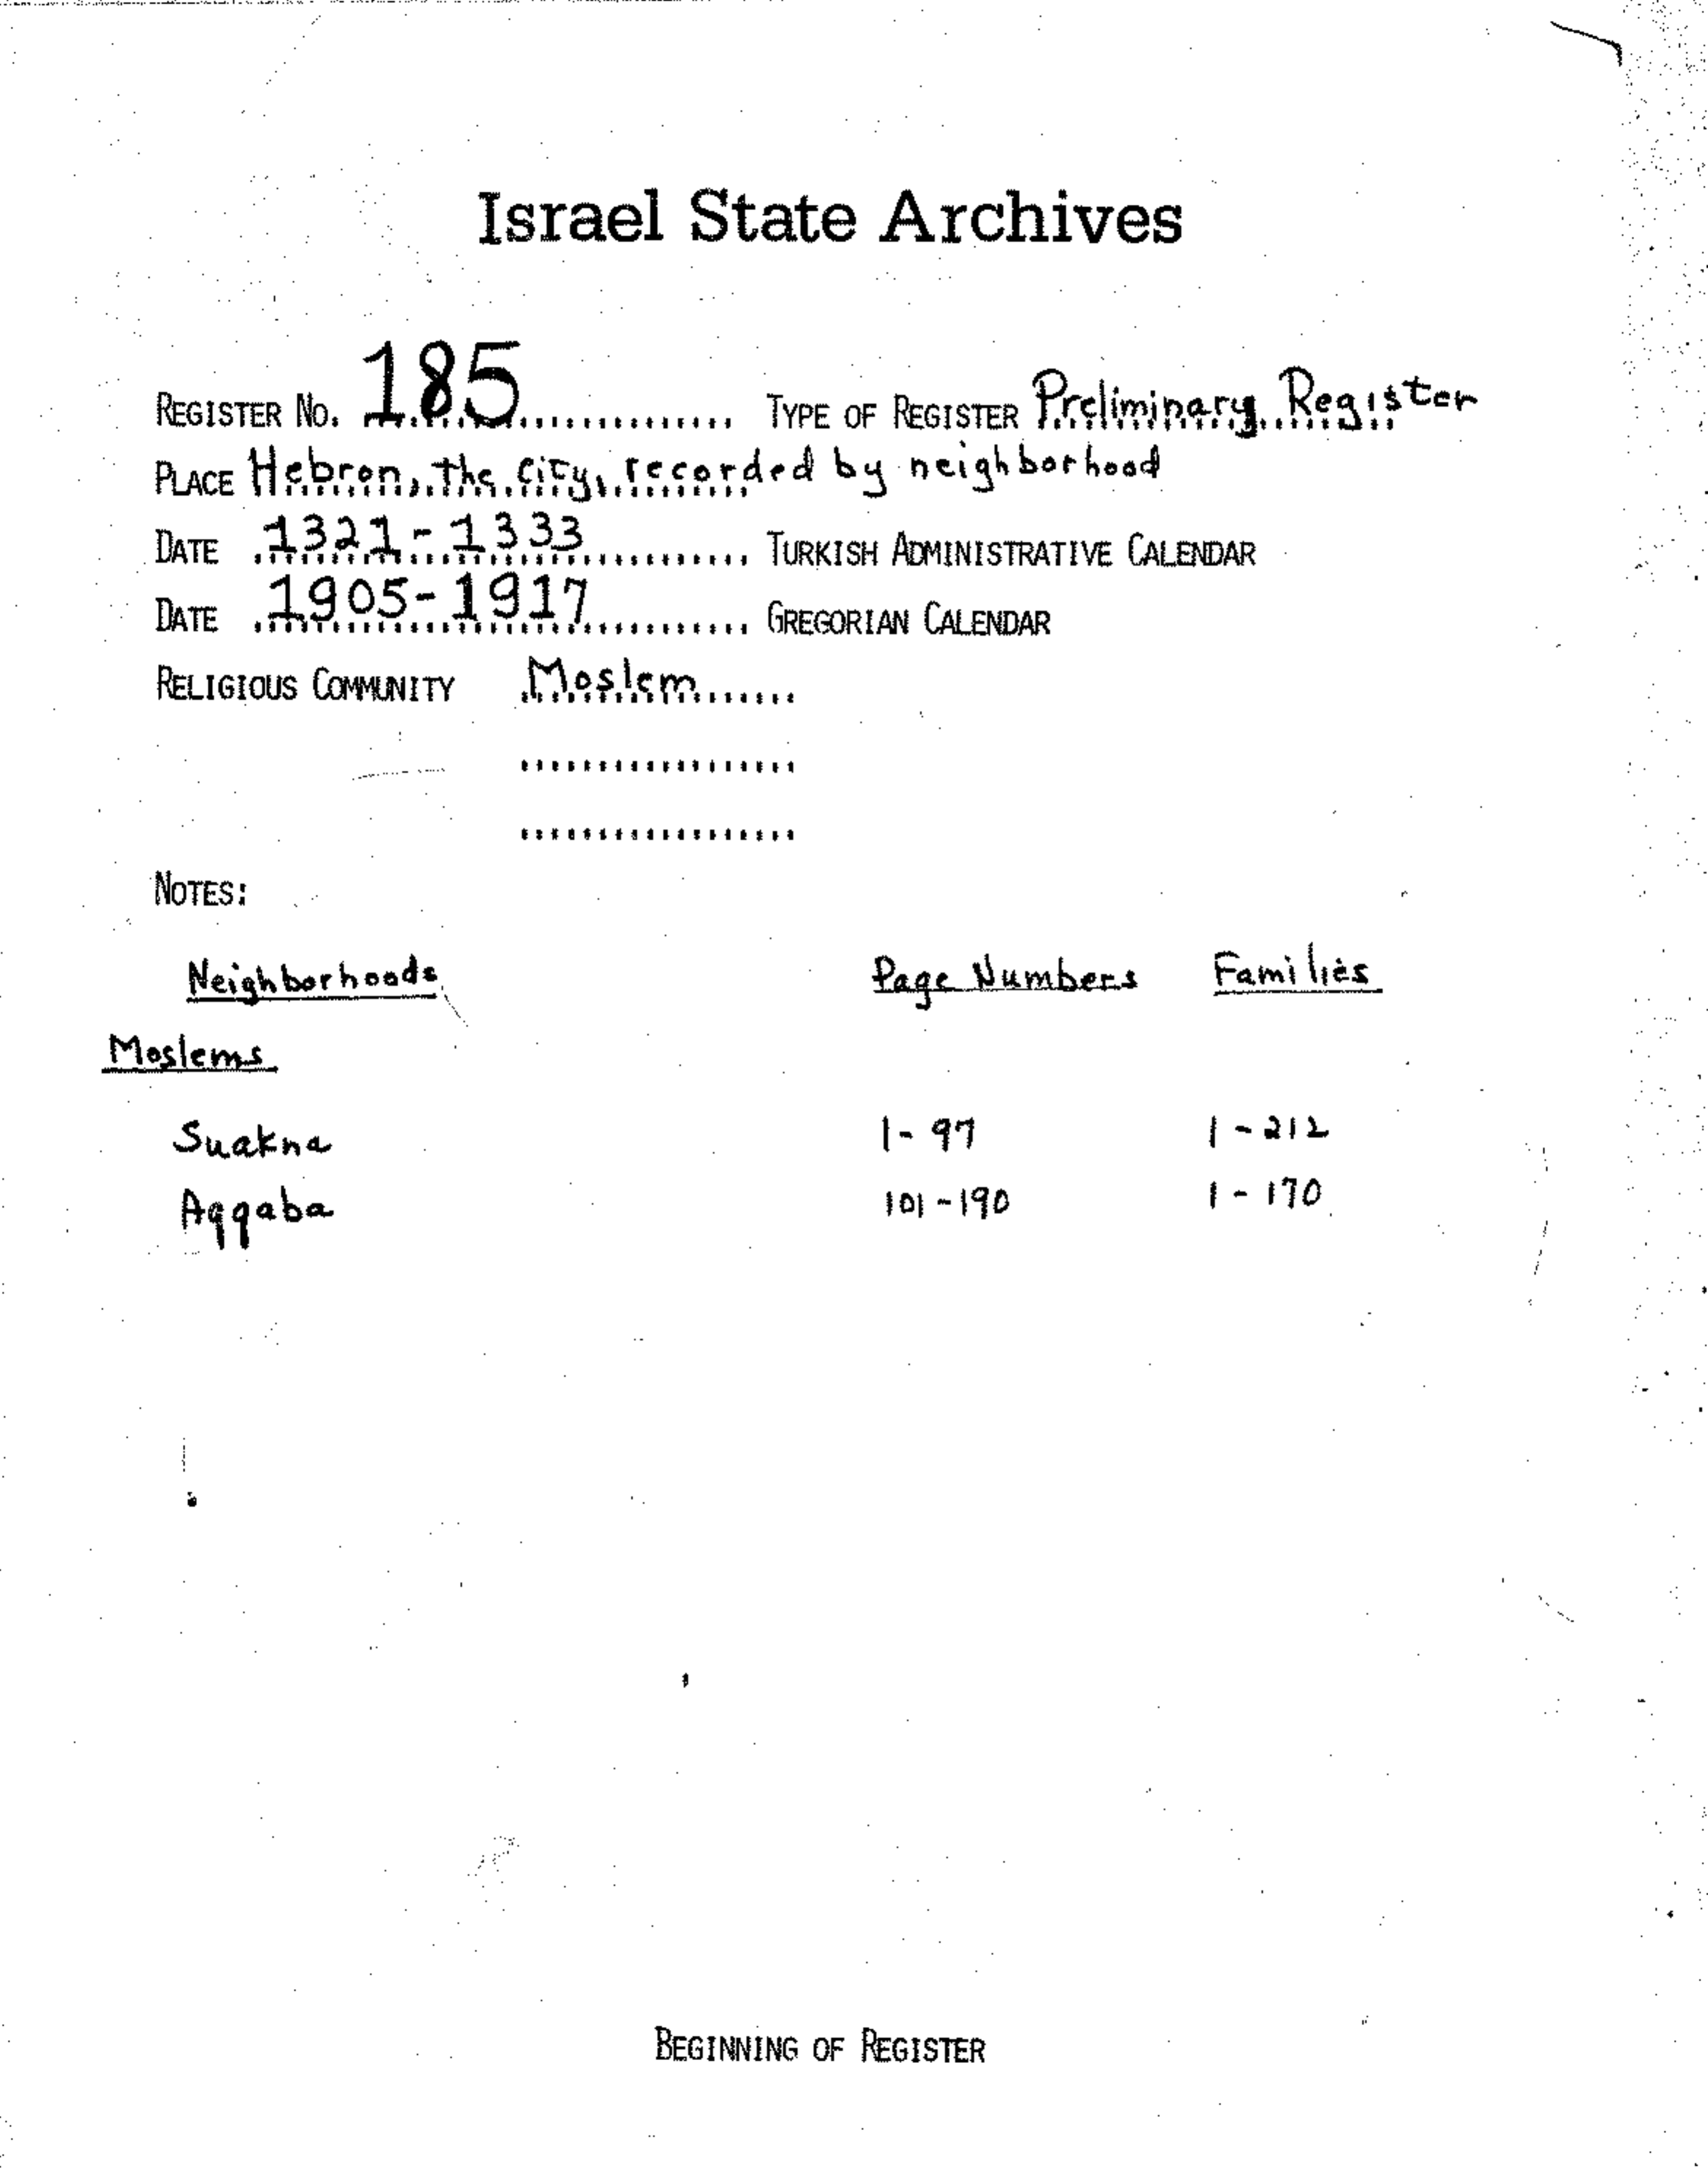 Israel State Archives
REGISTER NO. 185 TYPE OF REGISTER Preliminary Register
PLACE Hebron, the city, recorded by neighborhood
DATE 1321-1333 TURKISH ADMINISTRATIVE CALENDAR
DATE 1905-1917 GREGORIAN CALENDAR
RELIGIOUS COMMUNITY Moslem
NOTES:
Neighborhoods Page Numbers Families
Moslems
Suakna 1-97 1-212
Aqqaba 101-190 1-170
BEGINNING OF REGISTER